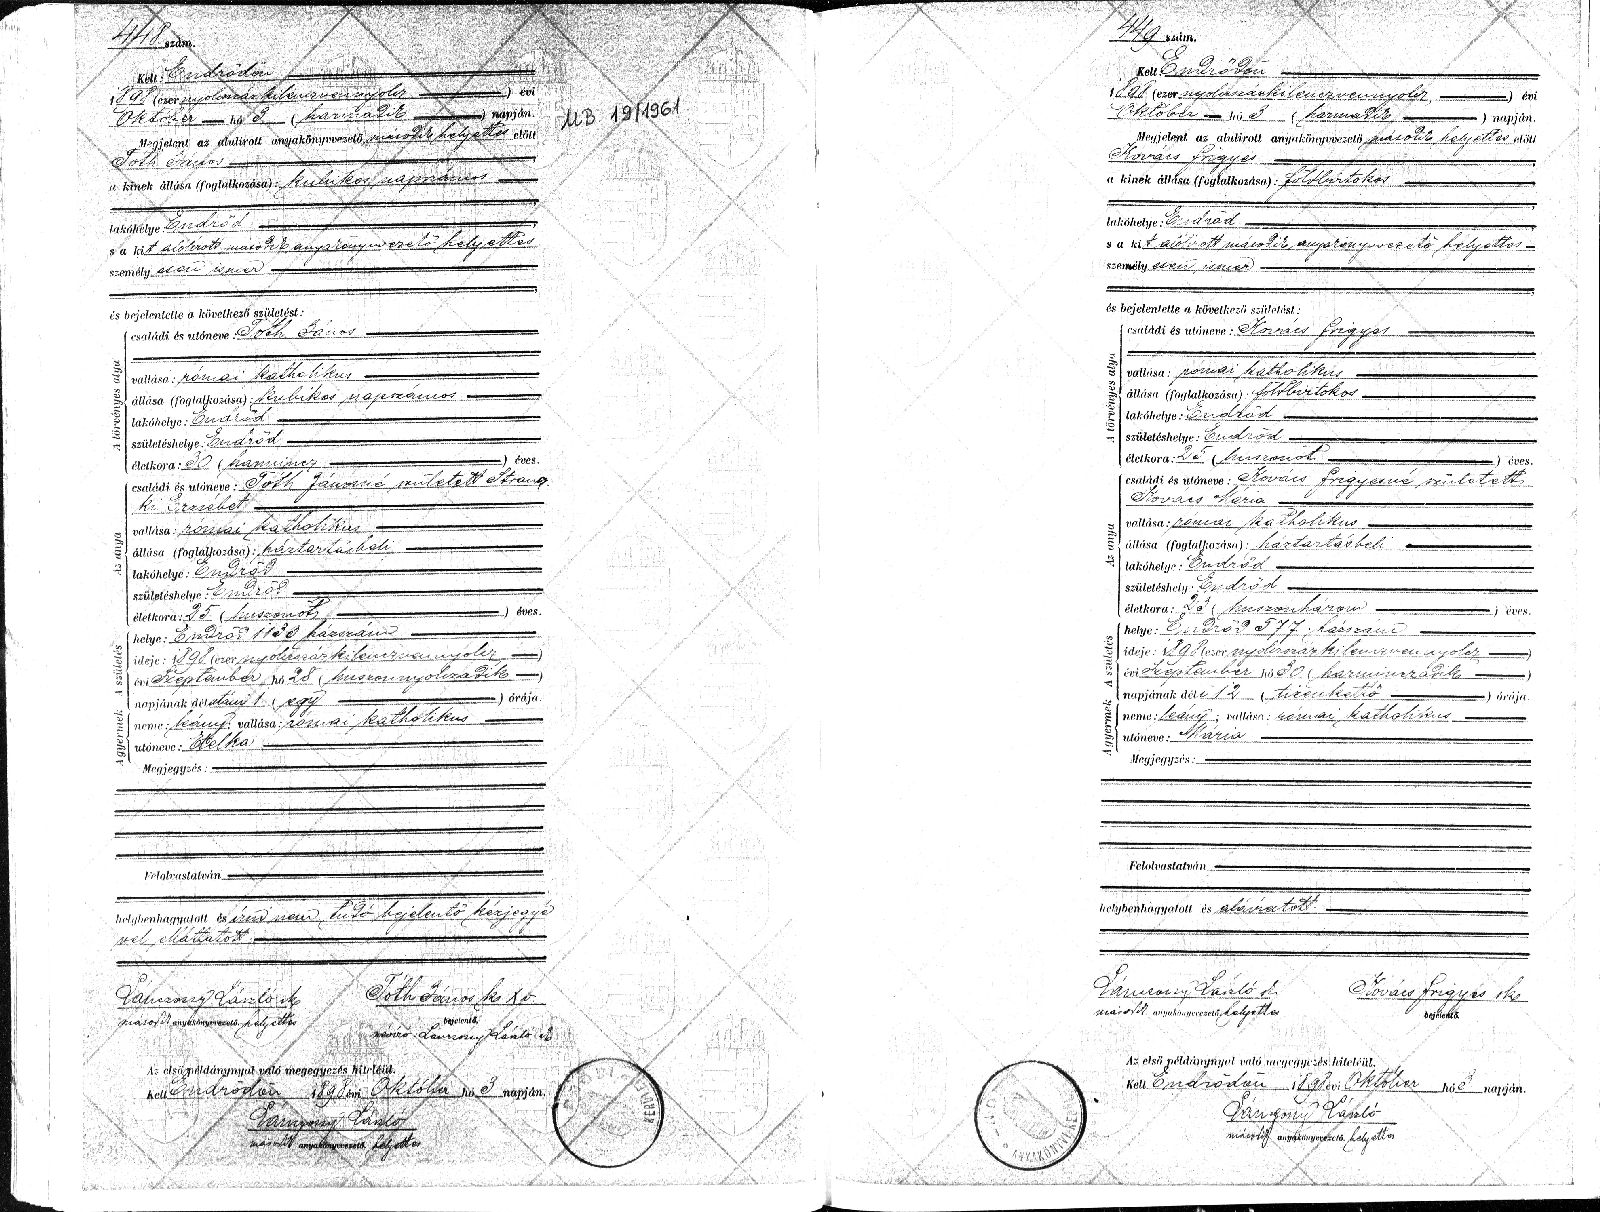 448 szám.
Kelt: Endrődön
1898 (ezer nyolcszázkilenczvennyolcz) évi
Október hó 3 (harmadik) napján.
MB 19/1961
Megjelent az alulirott anyakönyvvezető második helyettes előtt
Tóth János
a kinek állása (foglalkozása): kubikos napszámos
lakóhelye Endrőd
s a kit alólirott második anyakönyvvezető helyettes
személyesen ismer
és bejelentette a következő születést:
A törvényes atya
családi és utóneve: Tóth János
vallása: római katholikus
állása (foglalkozása): kubikos napszámos
lakóhelye: Endrőd
születéshelye: Endrőd
életkora: 30 (harmincz) éves.
Az anya
családi és utóneve: Tóth Jánosné született
Erzsébet
vallása: római katholikus
állása (foglalkozása): háztartásbeli
lakóhelye: Endrőd
születéshelye: Endrőd
életkora: 25 (huszonöt) éves.
A gyermek A születés
helye: Endrőd 1130 házszám
ideje: 1898 (ezer nyolczszázkilenczvennyolcz)
évi Szeptember hó 28 (huszonnyolczadik)
napjának délutáni 1 (egy) órája.
neme: leány; vallása: római katholikus
utóneve: Etelka
Megjegyzés:
Felolvastatván
helybenhagyatott és irni nem tudó bejelentő kézjegyé
vel elláttatott
László sk
második anyakönyvvezető helyettes
Tóth János
bejelentő.
László sk
Az első példánynyal való megegyezés hiteléül.
Kelt Endrődön 1898 évi Október hó 3 napján.
László
második anyakönyvvezető helyettes
449 szám.
Kelt Endrődön
1898 (ezer nyolczszázkilenczvennyolcz) évi
Október hó 3 (harmadik) napján.
Megjelent az alulirott anyakönyvvezető második helyettes előtt
Kovács Frigyes
a kinek állása (foglalkozása): földbirtokos
lakóhelye: Endrőd
s a kit alólirott második anyakönyvvezető helyettes
személyesen ismer
és bejelentette a következő születést:
A törvényes atya
családi és utóneve: Kovács Frigyes
vallása: római katholikus
állása (foglalkozása): földbirtokos
lakóhelye: Endrőd
születéshelye: Endrőd
életkora: 25 (huszonöt) éves.
Az anya
családi és utóneve: Kovács Frigyesné született
Kovács Mária
vallása: római katholikus
állása (foglalkozása): háztartásbeli
lakóhelye: Endrőd
születéshely: Endrőd
életkora: 23 (huszonhárom) éves.
A gyermek A születés
helye: Endrőd 577 házszám
ideje: 1898 (ezer nyolczszázkilenczvennyolcz)
évi Szeptember hó 30 (harminczadik)
napjának déli 12 (tizenkettő) órája.
neme: leány; vallása: római katholikus
utóneve: Mária
Megjegyzés:
Felolvastatván
helybenhagyatott és aláíratott
László sk
második anyakönyvvezető helyettes
Kovács Frigyes sk
bejelentő.
Az első példánynyal való megegyezés hiteléül.
Kelt Endrődön 1898 évi Október hó 3 napján.
László
második anyakönyvvezető helyettes